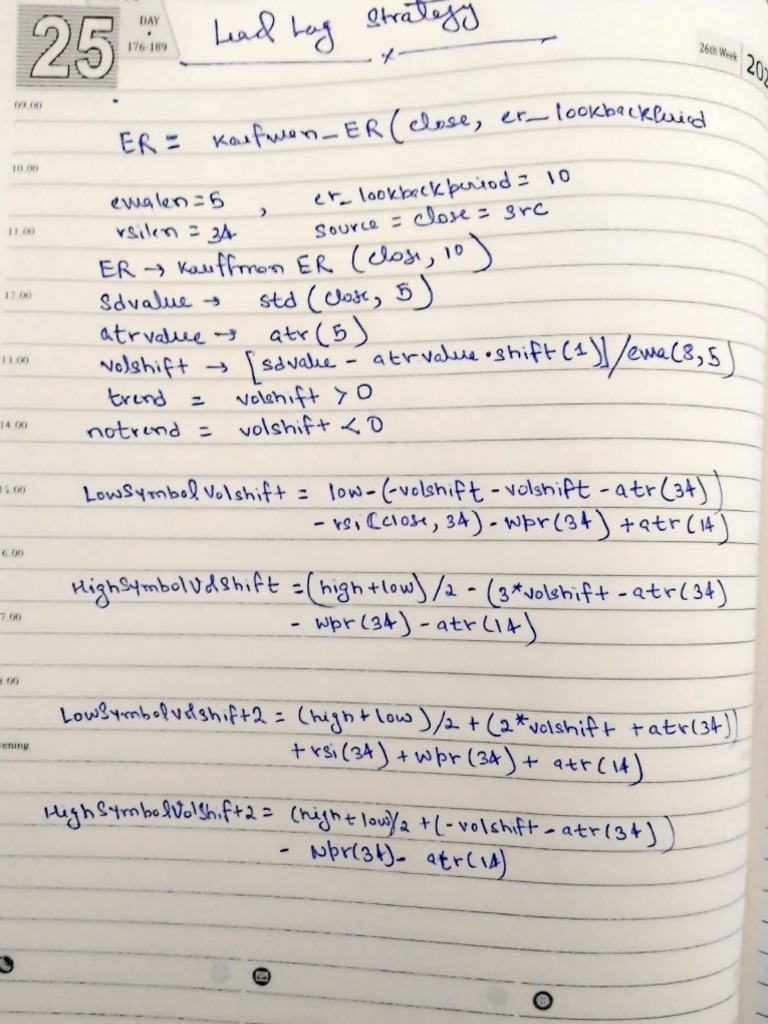 25
DAY
176-189
Lead Lag Strategy
x
26th Week
202
09.00
ER = Kaufman_ER (close, er_lookbackperiod
10.00
emalen = 5 , er_lookbackperiod = 10
11.00
rsilen = 34 source = close = src
ER → Kauffman ER (close, 10)
12.00
Sdvalue → std (close, 5)
atrvalue → atr (5)
13.00
volshift → [sdvalue - atrvalue.shift(1)]/ema(8,5)
trend = volshift > 0
14.00
notrend = volshift < 0
15.00
LowSymbolVolshift = low-(-volshift - volshift - atr(34))
- rsi (close, 34) - wpr(34) + atr(14)
6.00
HighSymbolVolShift = (high+low)/2 - (3*volshift - atr(34)
7.00
- wpr(34) - atr(14)
8.00
LowSymbolvolshift2 = (high + low)/2 + (2*volshift + atr(34))
vening
+ rsi(34) + wpr(34) + atr(14)
HighSymbolVolShift2 = (high+low)/2 + (-volshift - atr(34))
- wpr(34) - atr(14)